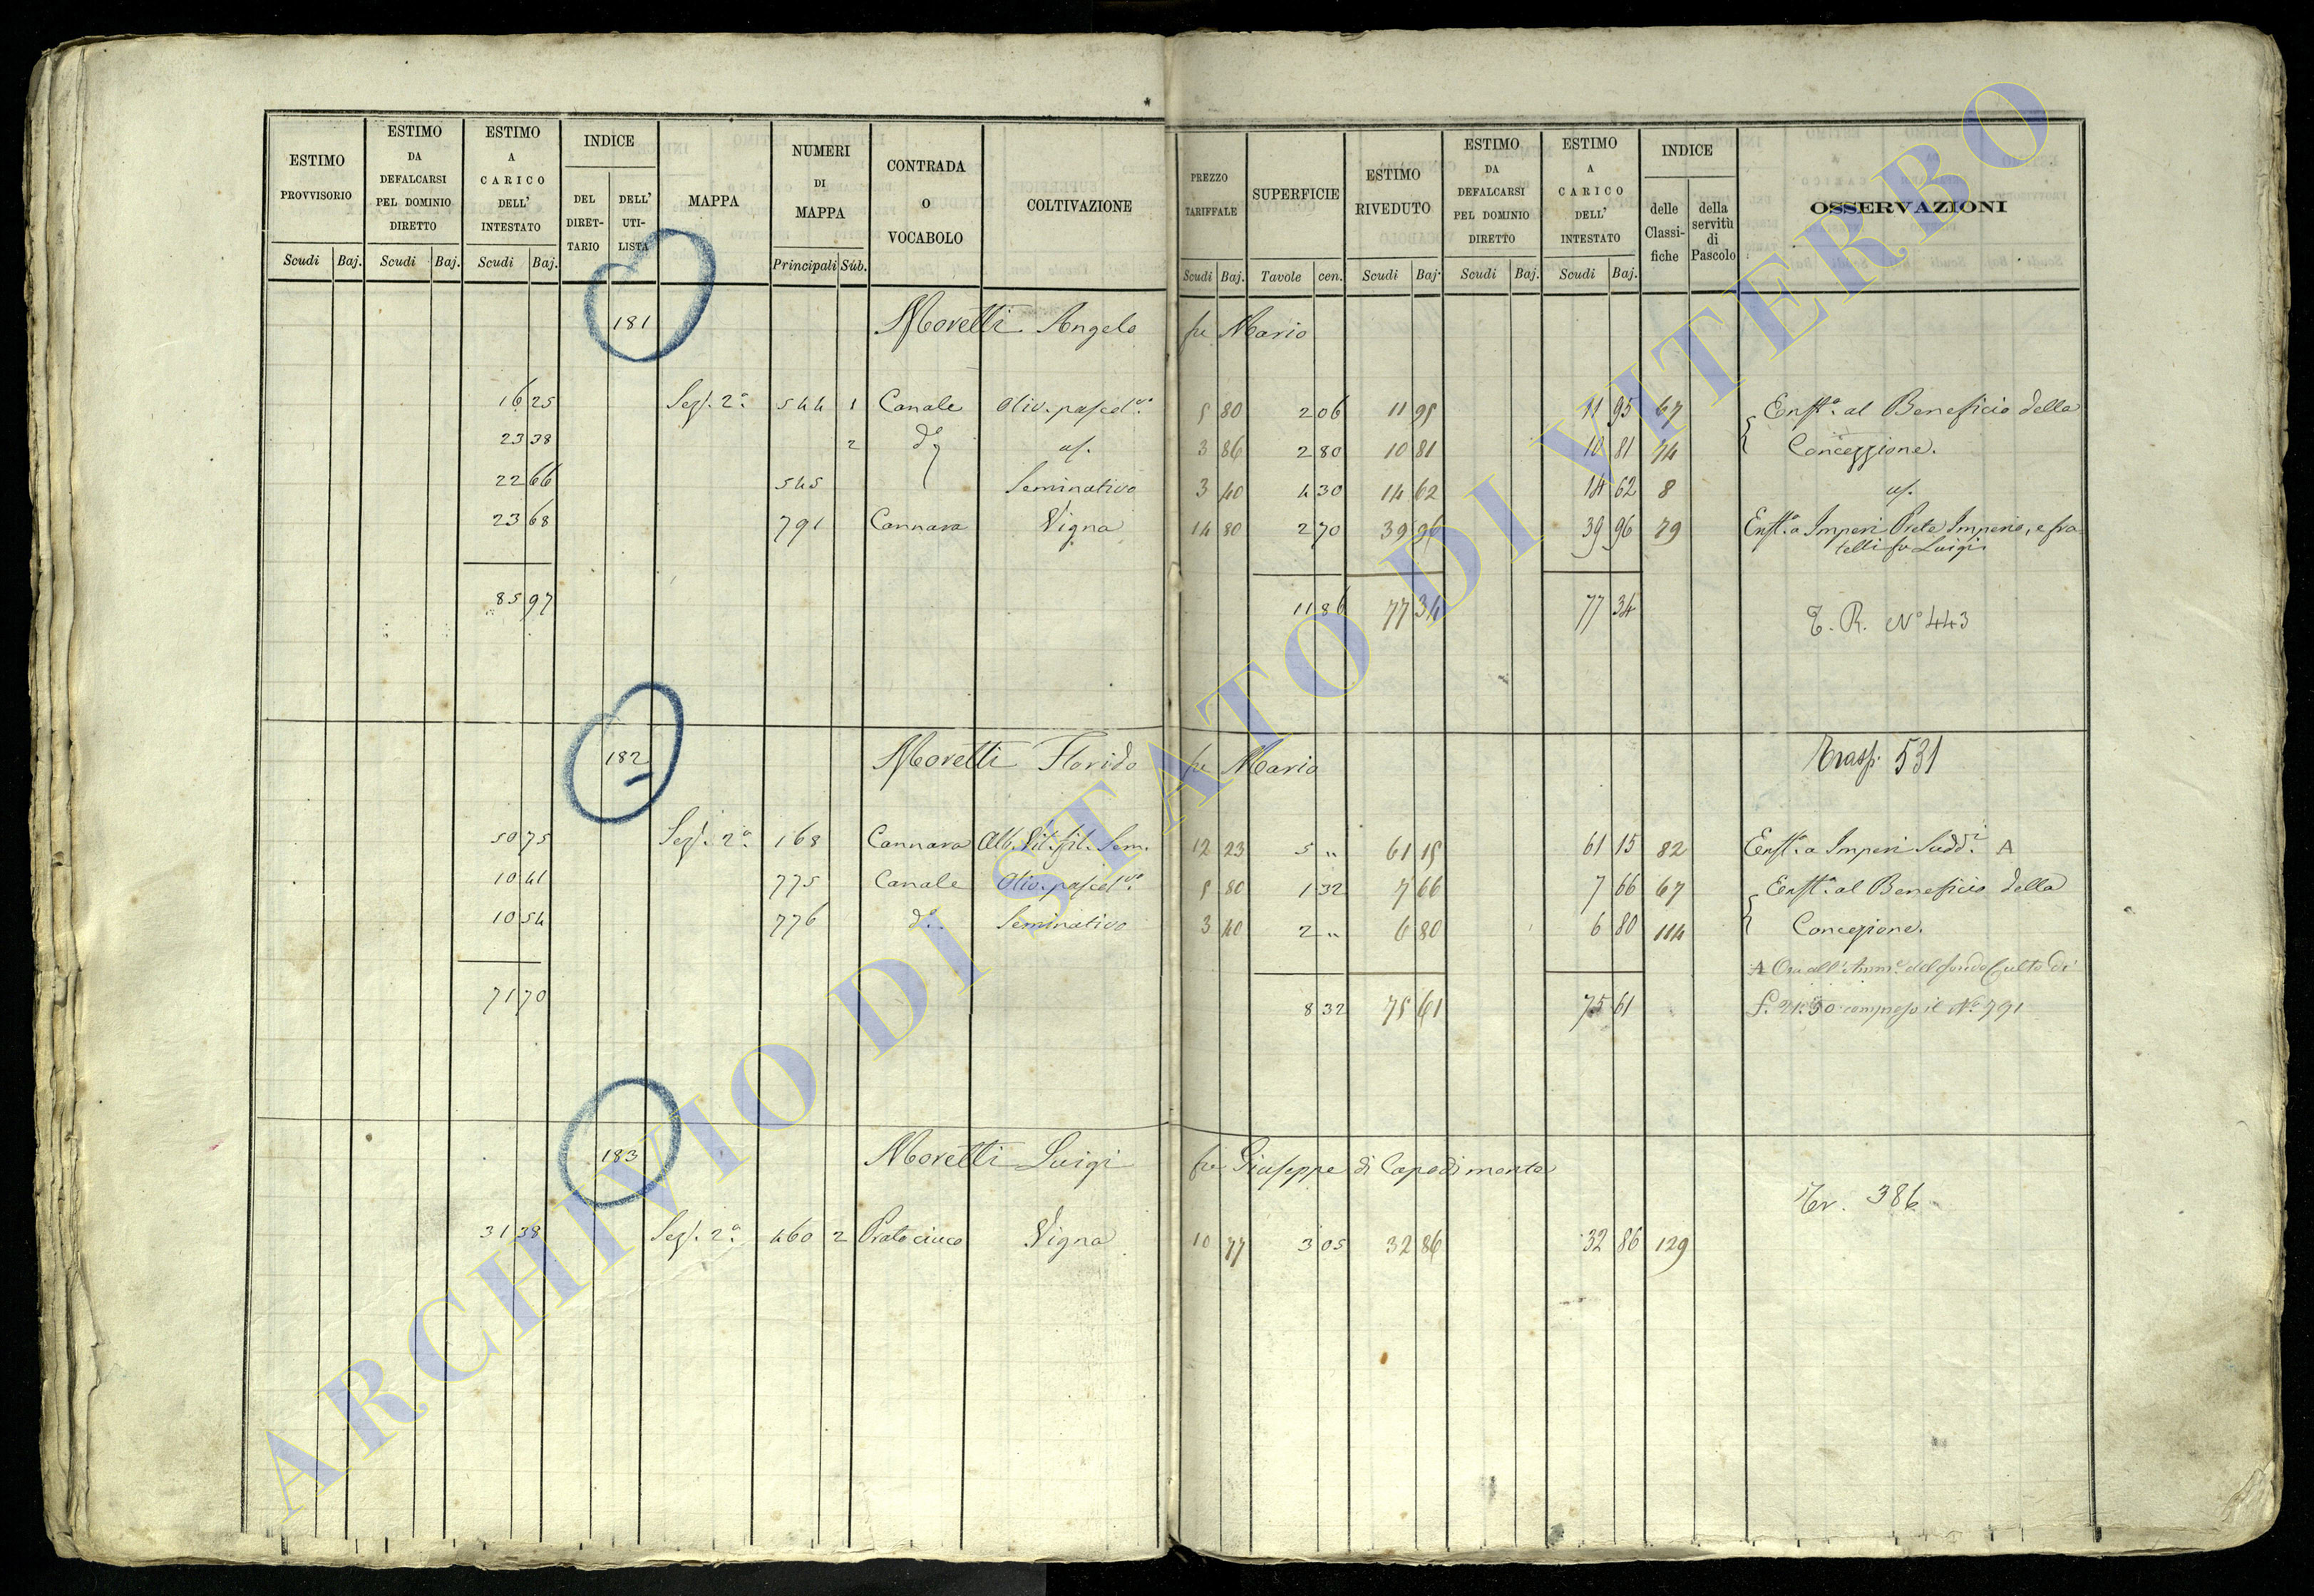 ESTIMO PROVVISORIO | ESTIMO DA DEFALCARSI PEL DOMINIO DIRETTO | ESTIMO A CARICO DELL' INTESTATO | INDICE DEL DIRET-TARIO | DELL' UTI-LISTA | MAPPA | NUMERI DI MAPPA | CONTRADA O VOCABOLO | COLTIVAZIONE | PREZZO TARIFFALE | SUPERFICIE | ESTIMO RIVEDUTO | ESTIMO DA DEFALCARSI PEL DOMINIO DIRETTO | ESTIMO A CARICO DELL' INTESTATO | INDICE delle Classi-fiche | della servitù di Pascolo | OSSERVAZIONI
Scudi Baj. | Scudi Baj. | Scudi Baj. | Principali Sub. | Scudi Baj. | Tavole cen. | Scudi Baj. | Scudi Baj. | Scudi Baj.
181 Moretti Angelo fu Mario
16 25 Sez. 2a 544 1 Canale Oliv. pascol.vo 5 80 2 06 11 95 11 95 67 Enft.a al Beneficio della
23 38 2 do id. 3 86 2 80 10 81 10 81 74 Concezzione.
22 66 545 Seminativo 3 40 4 30 14 62 14 62 8 id.
23 68 791 Cannara Vigna 14 80 2 70 39 96 39 96 79 Enft.a a Imperi Prete Imperio, e fra-
telli fu Luigi
85 97 11 86 77 34 77 34
T. R. No 443
182 Moretti Florido fu Mario Trasp. 531
50 75 Sez. 2a 168 Cannara Alb. Vit. fil. Sem. 12 23 5 " 61 15 61 15 82 Enft.a a Imperi Sudd.i A
10 41 775 Canale Oliv. pascol.vo 5 80 1 32 7 66 7 66 67 Enft.a al Beneficio della
10 54 776 do Seminativo 3 40 2 " 6 80 6 80 114 Concezione.
A Ora all' Amm.e del fondo Culto di
71 70 8 32 75 61 75 61 compreso il No 791
183 Moretti Luigi fu Giuseppe di Capodimonte
Tr. 386
31 38 Sez. 2a 460 2 Vigna 10 77 3 05 32 86 32 86 129
ARCHIVIO DI STATO DI VITERBO